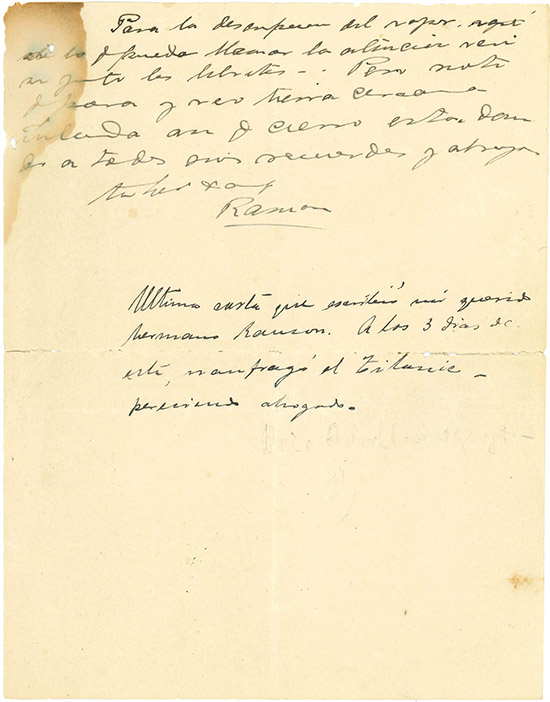 Para la descripcion del vapor, aqui
de lo q pueda llamar la atencion
junto los folletos -. Pero noto
q para y veo tierra cercana
Irlanda asi q cierro esta, dan
do a todos mis recuerdos y abrazos
tu her
Ramon
Ultima carta que escribió mi querido
hermano Ramon. A los 3 dias de
esta, naufragó el Titanic -
pereciendo ahogado.